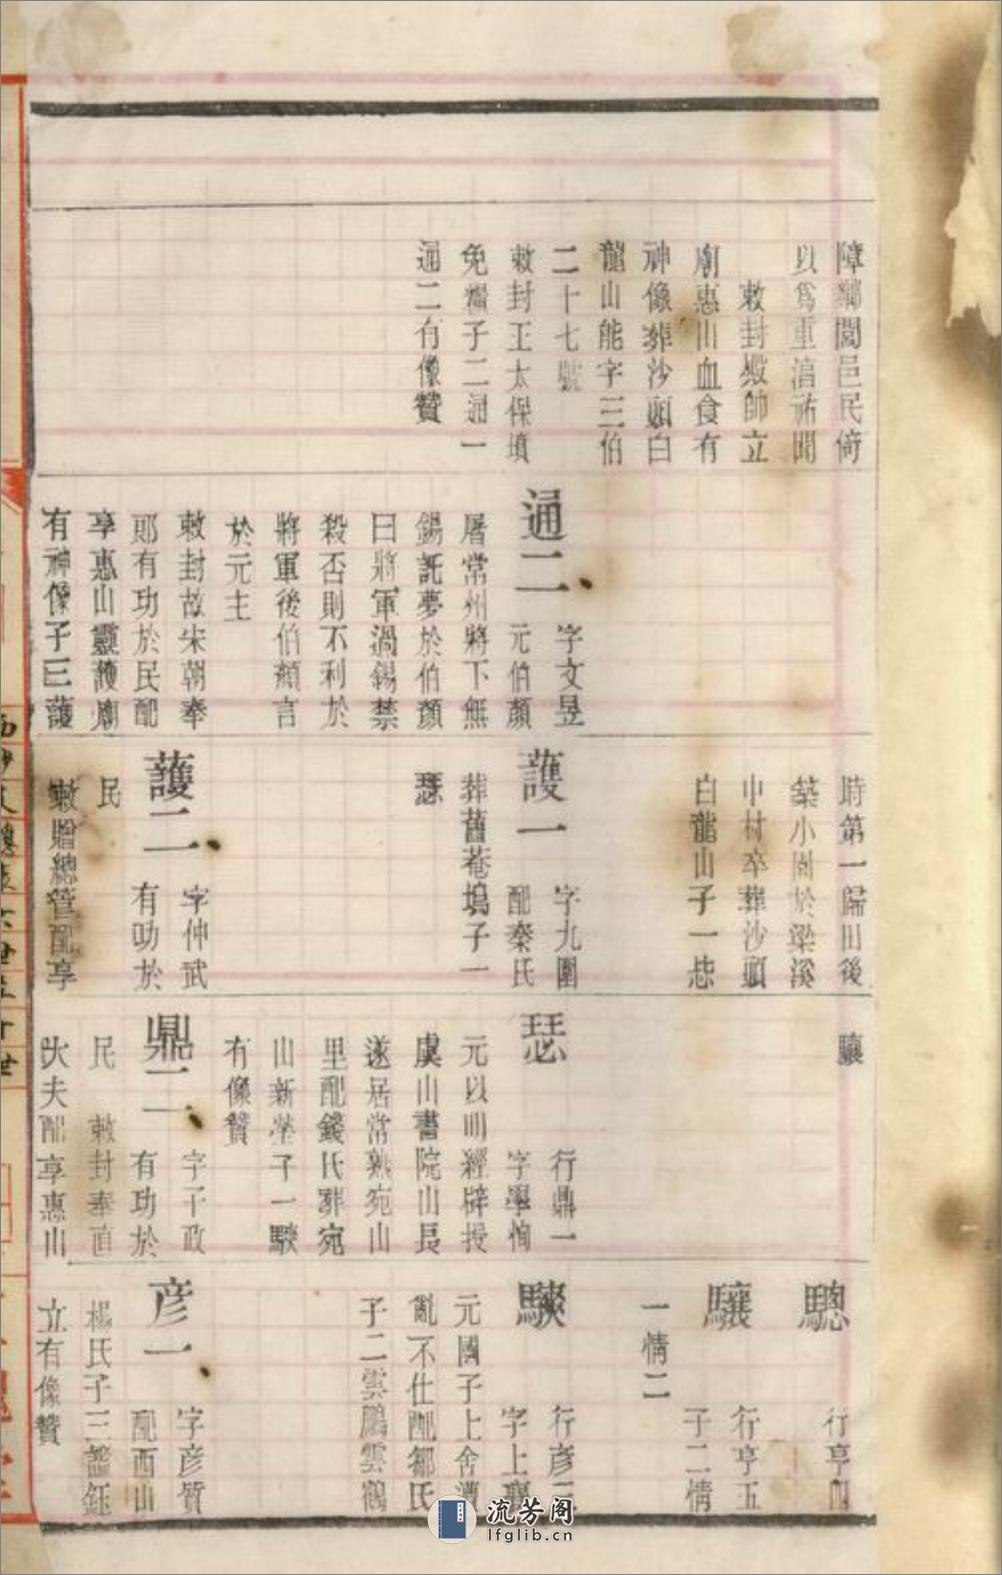 障鄰閭邑民倚
以爲重濸祐聞
敕封殿帥立
廟惠山血食有
神像葬沙頭白
龍山能字三伯
二十七號
敕封王太保墳
免糧子二通一
通二有像贊
通二
字文昱
元伯顏
屠常州將下無
錫託夢於伯顏
曰將軍過錫禁
殺否則不利於
將軍後伯顏言
於元主
敕封故宋朝奉
郎有功於民配
享惠山靈護廟
有神像子三護
時第一歸田後
築小園於梁溪
中村卒葬沙頭
白龍山子一
護一
字九圍
配秦氏
葬舊菴塢子一
瑟
護二
字仲武
有功於
民
敕贈總管配享
驤
瑟
行鼎一
字學恂
元以明經辟授
虞山書院山長
遂居常熟宛山
里配錢氏葬宛
山新塋子一驥
有像贊
鼎二
字干政
有功於
民 敕封奉直
大夫配享惠山
驄
行亨四
驤
行亨五
子二情
一情二
行彥二
字上襄
元國子上舍
亂不仕配鄒氏
子二雲鵬雲鶴
彥一
字彥質
配西山
楊氏子三謐鈺
立有像贊
流芳阁
lfglib.cn